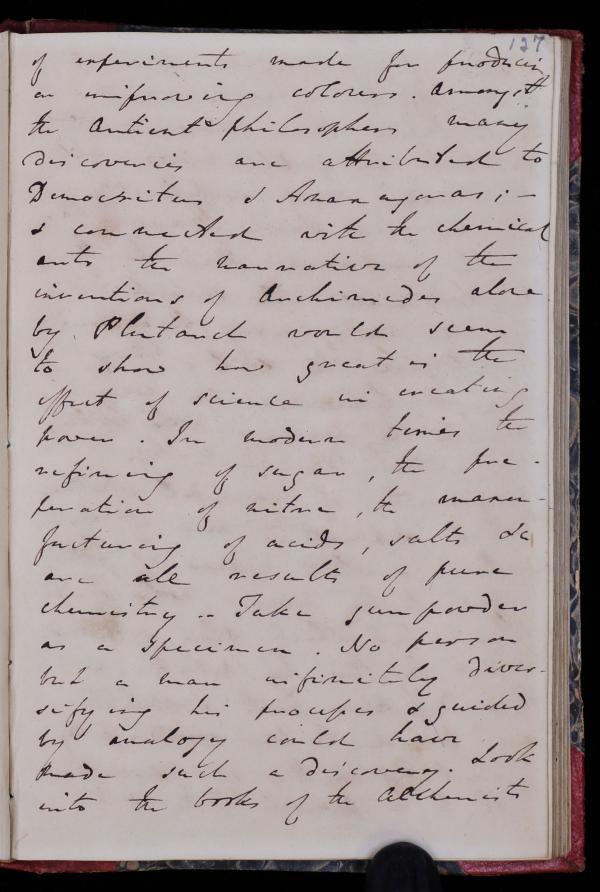 127
of experiments made for producing
or improving colours. Amongst
the Antient philosophers many
discoveries are attributed to
Democritus & Anaxagoras; –
& connected with the chemical
arts the narrative of the
inventions of Archimedes alone
by Plutarch would seem
to show how great is the
effect of science in creating
power. In modern times the
refining of sugar, the pre-
peration of nitre, the manu-
facturing of acids, salts &c
are all results of pure
chemistry .. Take gunpowder
as a specimen. No person
but a man infinitely diver-
sifying his processes & guided
by analogy could have
made such a discovery. Look
into the books of the Alchemists